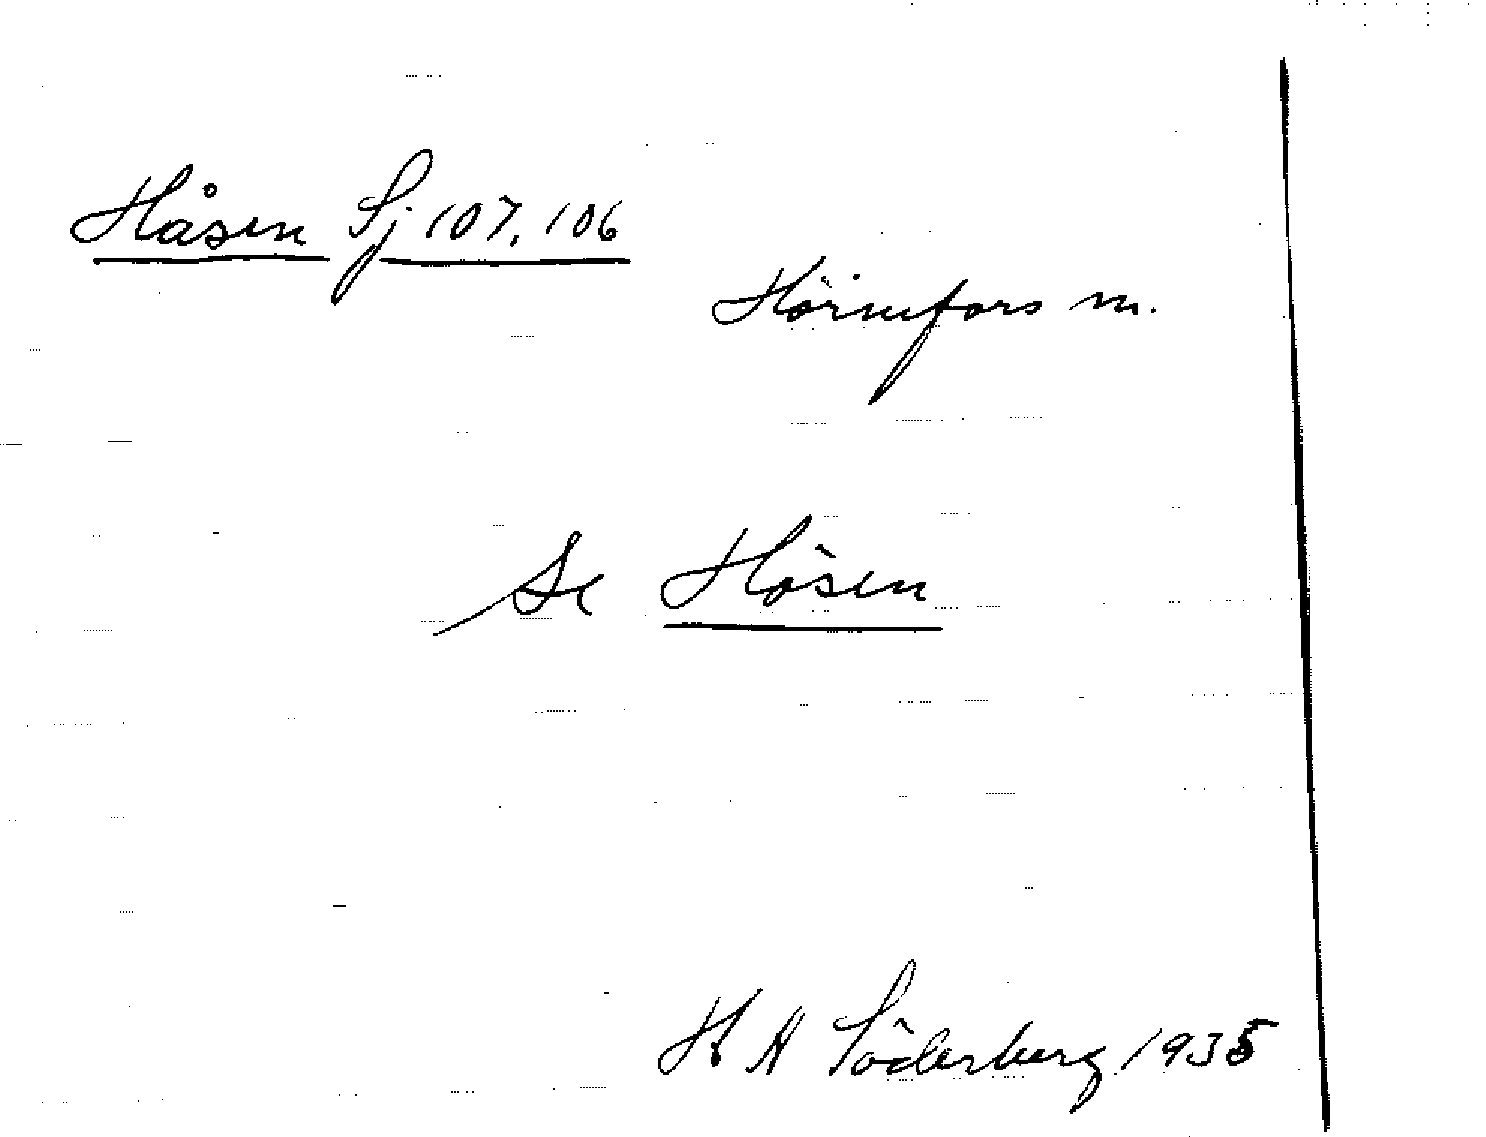 Håsen Sj 107, 106
Hörnefors m.
Se Hösen
K A Söderberg 1935